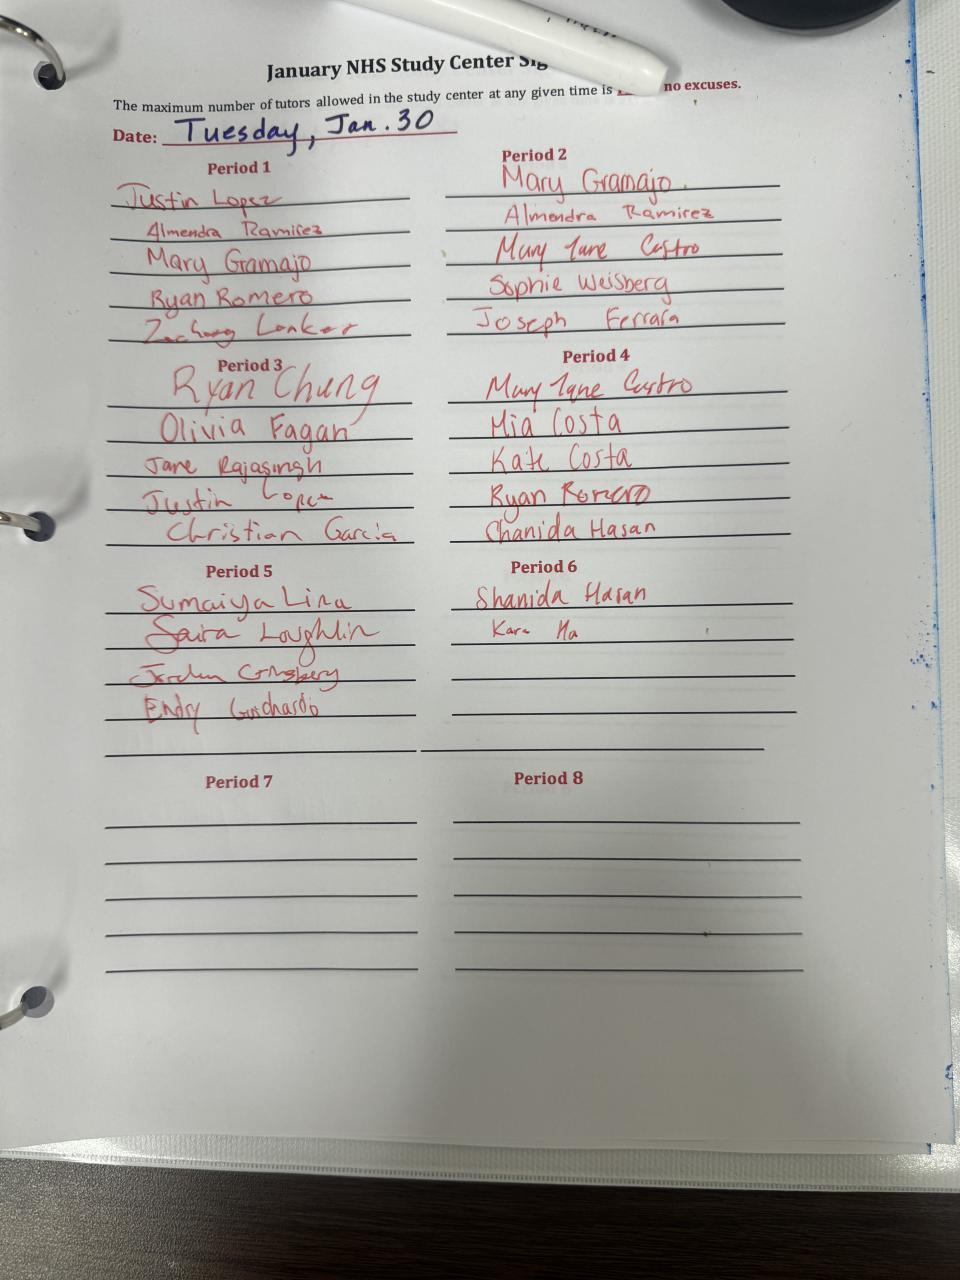 January NHS Study Center Sig
The maximum number of tutors allowed in the study center at any given time is no excuses.
Date: Tuesday, Jan. 30
Period 1
Justin Lopez
Almendra Ramirez
Mary Gramajo
Ryan Romero
Zachary
Period 2
Mary Gramajo
Almendra Ramirez
Mary Jane Castro
Sophie Weisberg
Joseph Ferrara
Period 3
Ryan Chung
Olivia Fagan
Jane Rajasingh
Justin Lopez
Christian Garcia
Period 4
Mary Jane Castro
Mia Costa
Kate Costa
Ryan Romero
Shanida Hasan
Period 5
Sumaiya Lira
Saira Loughlin
Jordan Ginsberg
Endy Guichardo
Period 6
Shanida Hasan
Kara Ma
Period 7
Period 8